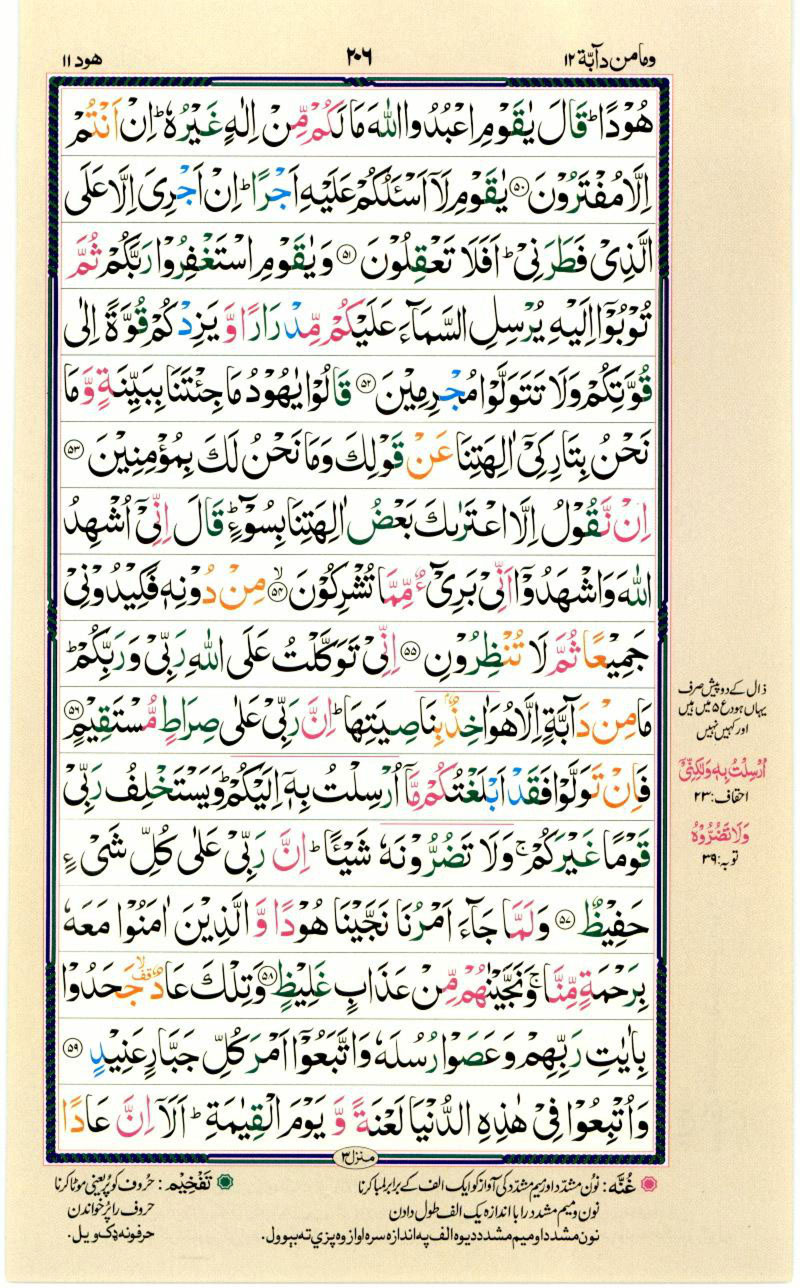 وما من دآبة ١٢
٢٠٦
هود ١١
هُوۡدًا ؕ قَالَ يٰقَوۡمِ اعۡبُدُوا اللّٰهَ مَا لَـكُمۡ مِّنۡ اِلٰهٍ غَيۡرُهٗ ؕ اِنۡ اَنۡتُمۡ
اِلَّا مُفۡتَرُوۡنَ ﴿۵۰﴾ يٰقَوۡمِ لَاۤ اَسۡـَٔلُكُمۡ عَلَيۡهِ اَجۡرًا ؕ اِنۡ اَجۡرِىَ اِلَّا عَلَى
الَّذِىۡ فَطَرَنِىۡ ؕ اَفَلَا تَعۡقِلُوۡنَ ﴿۵۱﴾ وَيٰقَوۡمِ اسۡتَغۡفِرُوۡا رَبَّكُمۡ ثُمَّ
تُوۡبُوۡۤا اِلَيۡهِ يُرۡسِلِ السَّمَآءَ عَلَيۡكُمۡ مِّدۡرَارًا وَّ يَزِدۡكُمۡ قُوَّةً اِلٰى
قُوَّتِكُمۡ وَلَا تَتَوَلَّوۡا مُجۡرِمِيۡنَ ﴿۵۲﴾ قَالُوۡا يٰهُوۡدُ مَا جِئۡتَنَا بِبَيِّنَةٍ وَّمَا
نَحۡنُ بِتٰرِكِىۡۤ اٰلِهَتِنَا عَنۡ قَوۡلِكَ وَمَا نَحۡنُ لَـكَ بِمُؤۡمِنِيۡنَ ﴿۵۳﴾
اِنۡ نَّقُوۡلُ اِلَّا اعۡتَرٰٮكَ بَعۡضُ اٰلِهَتِنَا بِسُوۡٓءٍ ؕ قَالَ اِنِّىۡۤ اُشۡهِدُ
اللّٰهَ وَاشۡهَدُوۡۤا اَنِّىۡ بَرِىۡٓءٌ مِّمَّا تُشۡرِكُوۡنَ ۙ‏ ﴿۵۴﴾ مِنۡ دُوۡنِهٖ فَكِيۡدُوۡنِىۡ
جَمِيۡعًا ثُمَّ لَا تُنۡظِرُوۡنِ ﴿۵۵﴾ اِنِّىۡ تَوَكَّلۡتُ عَلَى اللّٰهِ رَبِّىۡ وَرَبِّكُمۡ ؕ
مَا مِنۡ دَآبَّةٍ اِلَّا هُوَ اٰخِذٌۢ بِنَاصِيَتِهَا ؕ اِنَّ رَبِّىۡ عَلٰى صِرَاطٍ مُّسۡتَقِيۡمٍ ﴿۵۶﴾
فَاِنۡ تَوَلَّوۡا فَقَدۡ اَبۡلَغۡتُكُمۡ مَّاۤ اُرۡسِلۡتُ بِهٖۤ اِلَيۡكُمۡ ؕ وَيَسۡتَخۡلِفُ رَبِّىۡ
قَوۡمًا غَيۡرَكُمۡ ۚ وَلَا تَضُرُّوۡنَهٗ شَيۡـًٔا ؕ اِنَّ رَبِّىۡ عَلٰى كُلِّ شَىۡءٍ
حَفِيۡظٌ ﴿۵۷﴾ وَ لَمَّا جَآءَ اَمۡرُنَا نَجَّيۡنَا هُوۡدًا وَّ الَّذِيۡنَ اٰمَنُوۡا مَعَهٗ
بِرَحۡمَةٍ مِّنَّا ۚ وَ نَجَّيۡنٰهُمۡ مِّنۡ عَذَابٍ غَلِيۡظٍ ﴿۵۸﴾ وَتِلۡكَ عَادٌ ۟ۙ قف جَحَدُوۡا
بِاٰيٰتِ رَبِّهِمۡ وَعَصَوۡا رُسُلَهٗ وَاتَّبَعُوۡۤا اَمۡرَ كُلِّ جَبَّارٍ عَنِيۡدٍ ﴿۵۹﴾
وَاُتۡبِعُوۡا فِىۡ هٰذِهِ الدُّنۡيَا لَعۡنَةً وَّ يَوۡمَ الۡقِيٰمَةِ ؕ اَلَاۤ اِنَّ عَادًا
منزل ٣
ذال کے دو پیش صرف
یہاں ہود ع ۵ میں ہیں
اور کہیں نہیں
اُرۡسِلۡتُ بِهٖ وَلٰـكِنِّىۡۤ
احقاف: ۲۳
وَلَا تَضُرُّوۡهُ
توبہ: ۳۹
غُنَّه: نُون مشدّد اور میم مشدّد کی آواز کو ایک الف کے برابر لمبا کرنا
نون و میم مشدد را با اندازہ یک الف طول دادن
نون مشدد او میم مشدد دیوه الف په اندازه سره اواز وه پزې ته بېوول.
تَفۡخِيۡم: حُروف کو پُر یعنی موٹا کرنا
حروف را پُر خواندن
حرفونه ډک ویل.